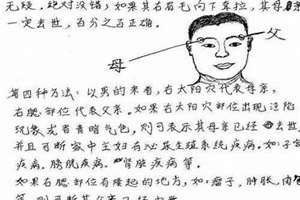 无绕。绝对没错；如果其右眉毛向下牵拉，其母亲
一定去世。百分之百正确。
父
母
第四种方法：以男的来看，右太阳穴代表母亲，
右腮部位代表父亲。如果右太阳穴部位出现凹陷
现象或者青暗气色，则可表示其母亲已经去世，
并且可断家中主妇有泌尿生殖系统疾病。如：子宫
疾病。膀胱疾病。肾脏疾病等。
如果右腮部位有隆起的地方，如：瘤子，肿胀，肉